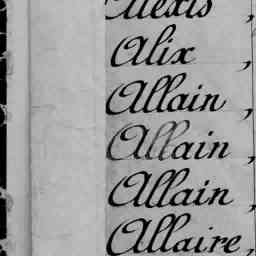 Alexis,
Alix,
Allain,
Allain,
Allain,
Allaire,